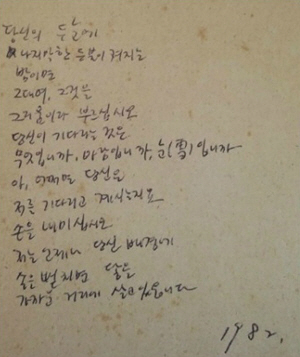 당신의 두 눈에
나지막한 등불이 켜지는
밤이면
그대여, 그것을
그리움이라 부르십시오
당신이 기다리는 것은
무엇입니까, 바람입니까, 눈(雪)입니까
아, 어쩌면 당신은
저를 기다리고 계시는지요
손을 내미십시오
저는 언제나 당신 배경에
숨은 별처럼 닿을
가까운 거리에 살고 있읍니다
1982.